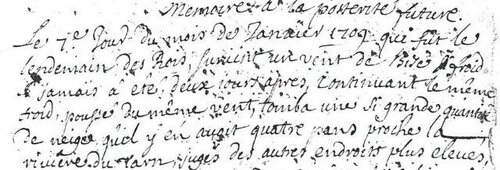 Memoire a la posterité future.
Le 7e Jour du mois de Janvier 1709 qui fut le
lendemain des Rois, survint un vent de bise si froid
si jamais a été, deux jours apres, Continuant le même
froid, poussé du même vent, tomba une si grande quantité
de neige qu'il y en avoit quatre pans proche la
riviere du Tarn, jugés des autres endroits plus elevés,